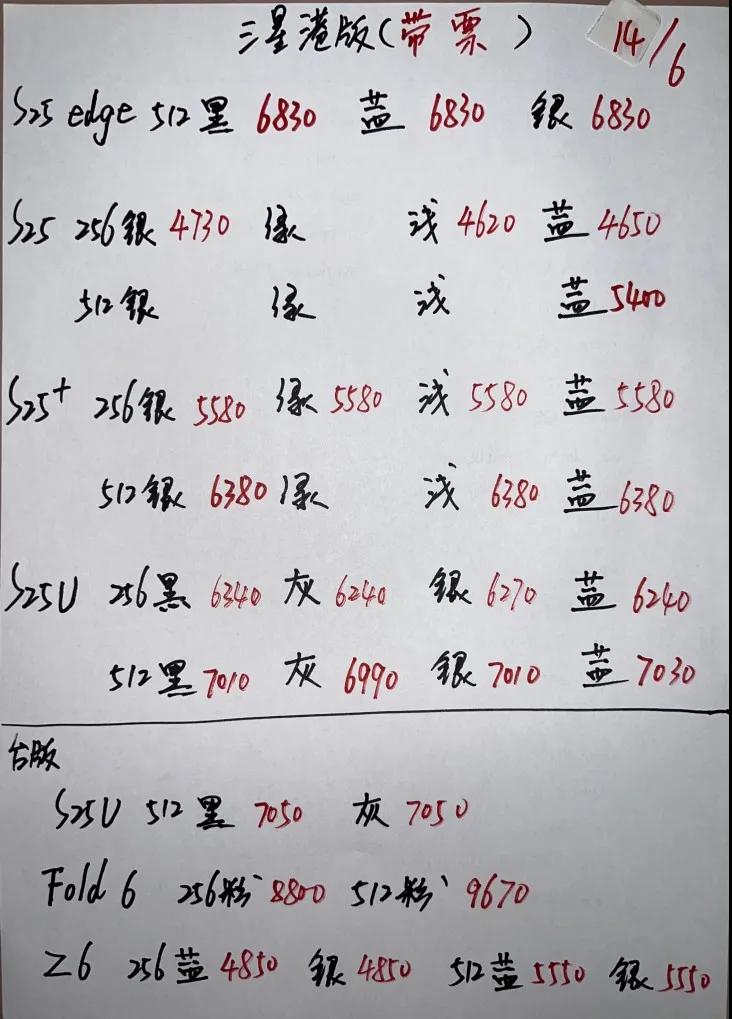 三星港版(带票) 14/6
S25 edge 512黑 6830 蓝 6830 银 6830
S25 256银 4730 绿 浅 4620 蓝 4650
512银 绿 浅 蓝 5400
S25+ 256银 5580 绿 5580 浅 5580 蓝 5580
512银 6380 绿 浅 6380 蓝 6380
S25U 256黑 6340 灰 6240 银 6270 蓝 6240
512黑 7010 灰 6990 银 7010 蓝 7030
台版
S25U 512黑 7050 灰 7050
Fold 6 256粉 8800 512粉 9670
Z6 256蓝 4850 银 4850 512蓝 5550 银 5550